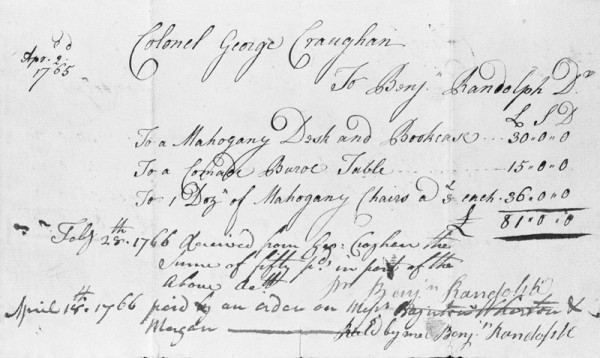 Colonel George Craughan
Apr. 2d.
1765
To Benjn. Randolph Dr
£ S D
To a Mahogany Desk and Bookcase 30..0..0
To a Comade Buroe Table 15..0..0
To 1 Dozn of Mahogany Chairs a 3£ each 36..0..0
£ 81..0..0
Feby 28th. 1766 Received from Geo: Croghan the
Sume of fifty pds in part of the
Above debt
Pr Benjn Randolph
April 18th. 1766 paid by an order on Messrs Baynton Wharton &
Morgan Recd by me Benjn Randolph